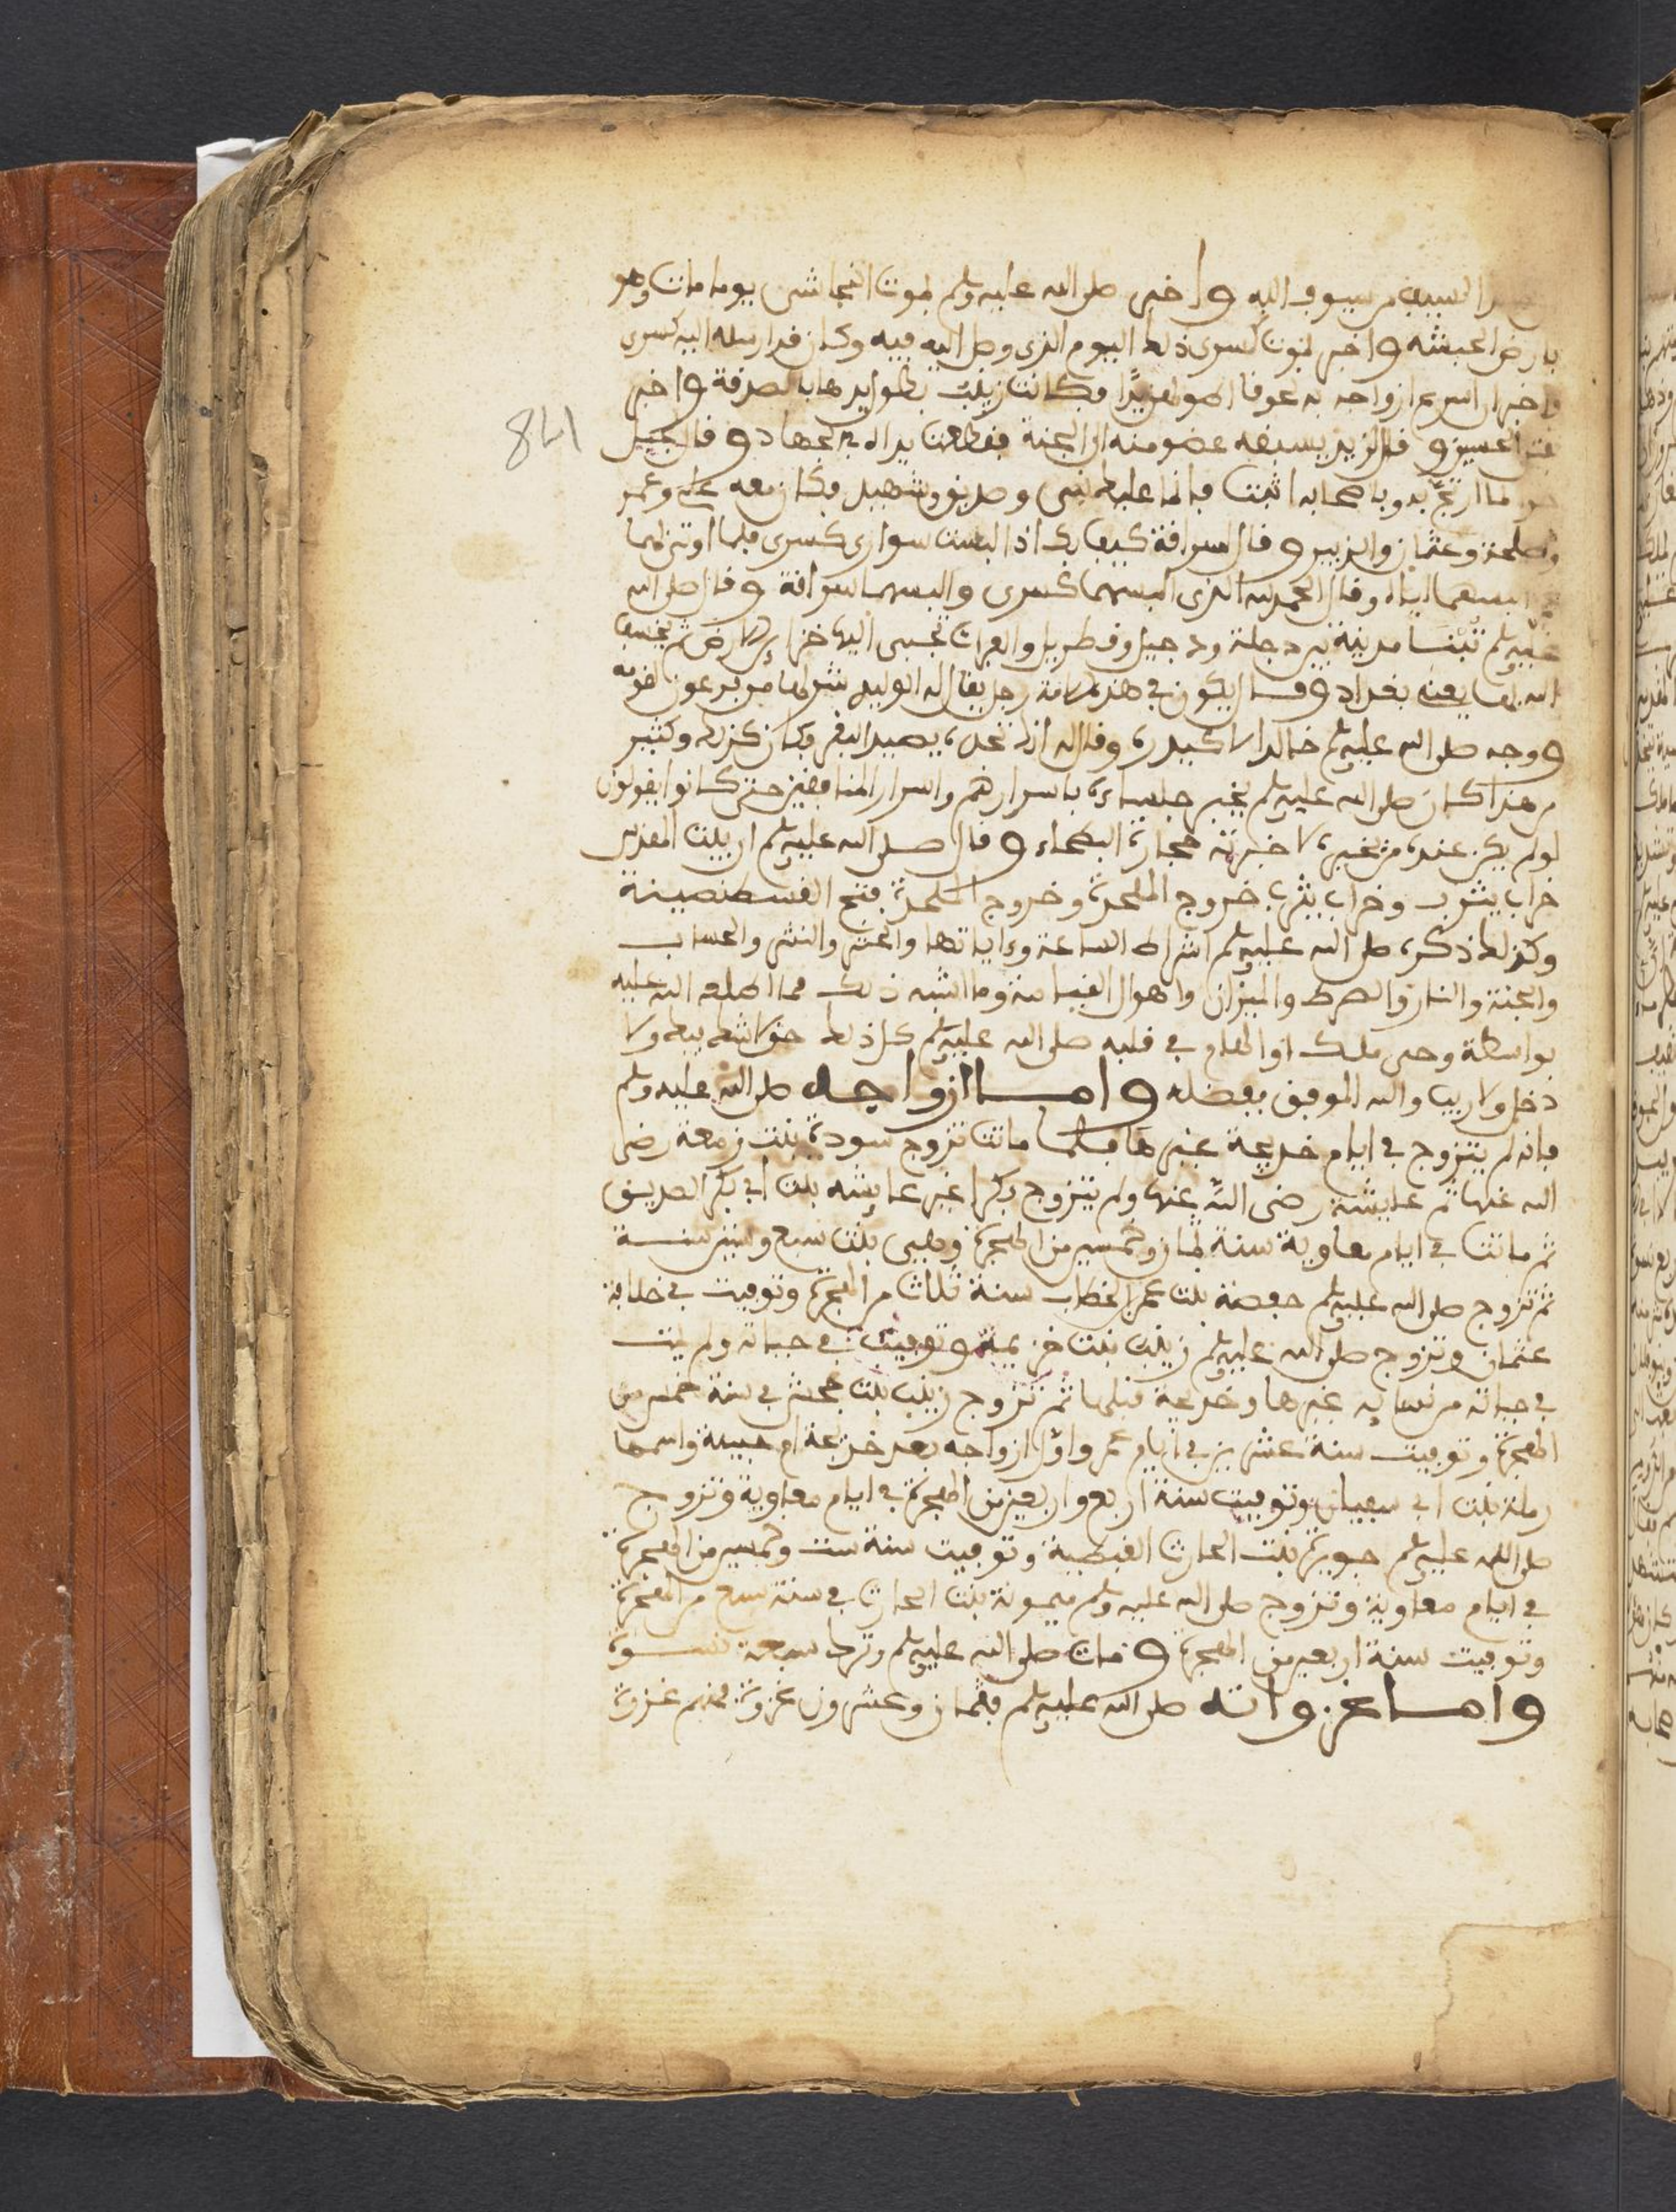 السيف من سيوف الله واخبر صلى الله عليه وسلم بموت النجاشي يوم مات وهو
بارض الحبشة واخبر بموت كسرى ذلك اليوم الذي وصل اليه فيه وكان قد ارسله اليه كسرى
واخبر ان اسرع ازواجه به لحوقا اطولهن يدا فكانت زينب بطول يدها بالصدقة واخبر
الحسين وقال لزيد يسبقه عضو منه الى الجنة فقطعت يداه في الجهاد وقال لجبل
ما ارتج به وباصحابه اثبت فانما عليك نبي وصديق وشهيد فكان معه علي وعمر
وطلحة وعثمان والزبير وقال لسراقة كيف بك اذا البست سواري كسرى فلما اوتي بهما
البسهما اياه وقال الحمد لله الذي البسهما كسرى والبسهما سراقة وقال صلى الله
عليه وسلم تبنى مدينة بين دجلة ودجيل وقطربل والصراة تجبى اليها خزائن الارض يخسف
الله بها يعني بغداد وقال يكون في هذه الامة رجل يقال له الوليد شر لها من فرعون لقومه
ووجه صلى الله عليه وسلم خالدا لاكيدر وقال له انك تجده يصيد البقر وكان كذلك وكثير
من هذا كان صلى الله عليه وسلم يخبر جلساءه باسرارهم واسرار المنافقين حتى كانوا يقولون
لو لم يكن عنده من يخبره لاخبرته حجارة البطحاء وقال صلى الله عليه وسلم ان بيت المقدس
خراب يثرب وخراب يثرب خروج الملحمة وخروج الملحمة فتح القسطنطينة
وكذلك ذكره صلى الله عليه وسلم اشراط الساعة وءاياتها والحشر والنشر والحساب
والجنة والنار والصرط والميزان واهوال القيامة وما اشبه ذلك مما اطلعه الله عليه
بواسطة وحي ملك او الهام في قلبه صلى الله عليه وسلم كل ذلك حق لا شك فيه ولا
دخل ولا ريب والله الموفق بفضله واما ازواجه صلى الله عليه وسلم
فانه لم يتزوج في ايام خديجة غيرها فلما ماتت تزوج سودة بنت زمعة رضي
الله عنها ثم عايشة رضي الله عنها ولم يتزوج بكرا غير عايشة بنت ابي بكر الصديق
ثم ماتت في ايام معاوية سنة ثمان وخمسين من الهجرة وهي بنت سبع وستين سنة
ثم تزوج صلى الله عليه وسلم حفصة بنت عمر بن الخطاب سنة ثلاث من الهجرة وتوفيت في خلافة
عثمان وتزوج صلى الله عليه وسلم زينب بنت خزيمة وتوفيت في حياته ولم يمت
في حياته من نسايه غيرها وخديجة قبلها ثم تزوج زينب بنت جحش في سنة خمس من
الهجرة وتوفيت سنة عشرين في ايام عمر واول ازواجه بعد خديجة ام حبيبة واسمها
رملة بنت ابي سفيان وتوفيت سنة اربع واربعين من الهجرة في ايام معاوية وتزوج
صلى الله عليه وسلم جويرية بنت الحارث القبطية وتوفيت سنة ست وخمسين من الهجرة
في ايام معاوية وتزوج صلى الله عليه وسلم ميمونة بنت الحارث في سنة سبع من الهجرة
وتوفيت سنة اربعين من الهجرة ومات صلى الله عليه وسلم وترك سبعة نسوة
واما غزواته صلى الله عليه وسلم فثمان وعشرون غزوة فمنهم غزوة